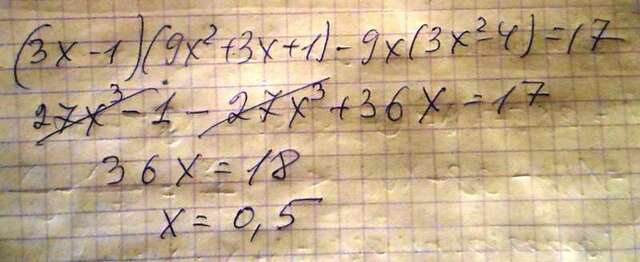 (3x-1)(9x²+3x+1)-9x(3x²-4)=17
27x³-1-27x³+36x=17
36x=18
x=0,5